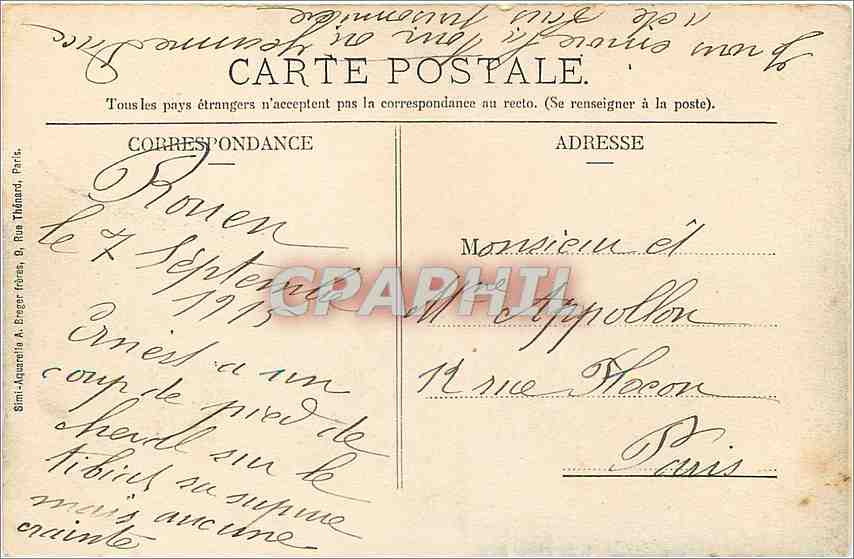 Je vous envoie la Tour où Jeanne d'Arc
a été
prisonnière
CARTE POSTALE.
Tous les pays étrangers n'acceptent pas la correspondance au recto. (Se renseigner à la poste).
CORRESPONDANCE
Rouen
le 7 Septembre
1915
Ernest a un
coup de pied de
cheval sur le
tibia
mais aucune
crainte
ADRESSE
Monsieur et
Mme Appollon
12 rue Flocon
Paris
Simi-Aquarelle A. Breger frères, 9, Rue Thénard, Paris.
CPAPHIL